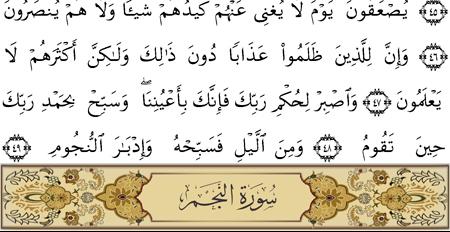 يُصْعَقُونَ ﴿٤٥﴾ يَوْمَ لَا يُغْنِى عَنْهُمْ كَيْدُهُمْ شَيْـًٔا وَلَا هُمْ يُنصَرُونَ
﴿٤٦﴾ وَإِنَّ لِلَّذِينَ ظَلَمُوا۟ عَذَابًا دُونَ ذَٰلِكَ وَلَٰكِنَّ أَكْثَرَهُمْ لَا
يَعْلَمُونَ ﴿٤٧﴾ وَٱصْبِرْ لِحُكْمِ رَبِّكَ فَإِنَّكَ بِأَعْيُنِنَا ۖ وَسَبِّحْ بِحَمْدِ رَبِّكَ
حِينَ تَقُومُ ﴿٤٨﴾ وَمِنَ ٱلَّيْلِ فَسَبِّحْهُ وَإِدْبَٰرَ ٱلنُّجُومِ ﴿٤٩﴾
سُورَةُ النَّجْمِ